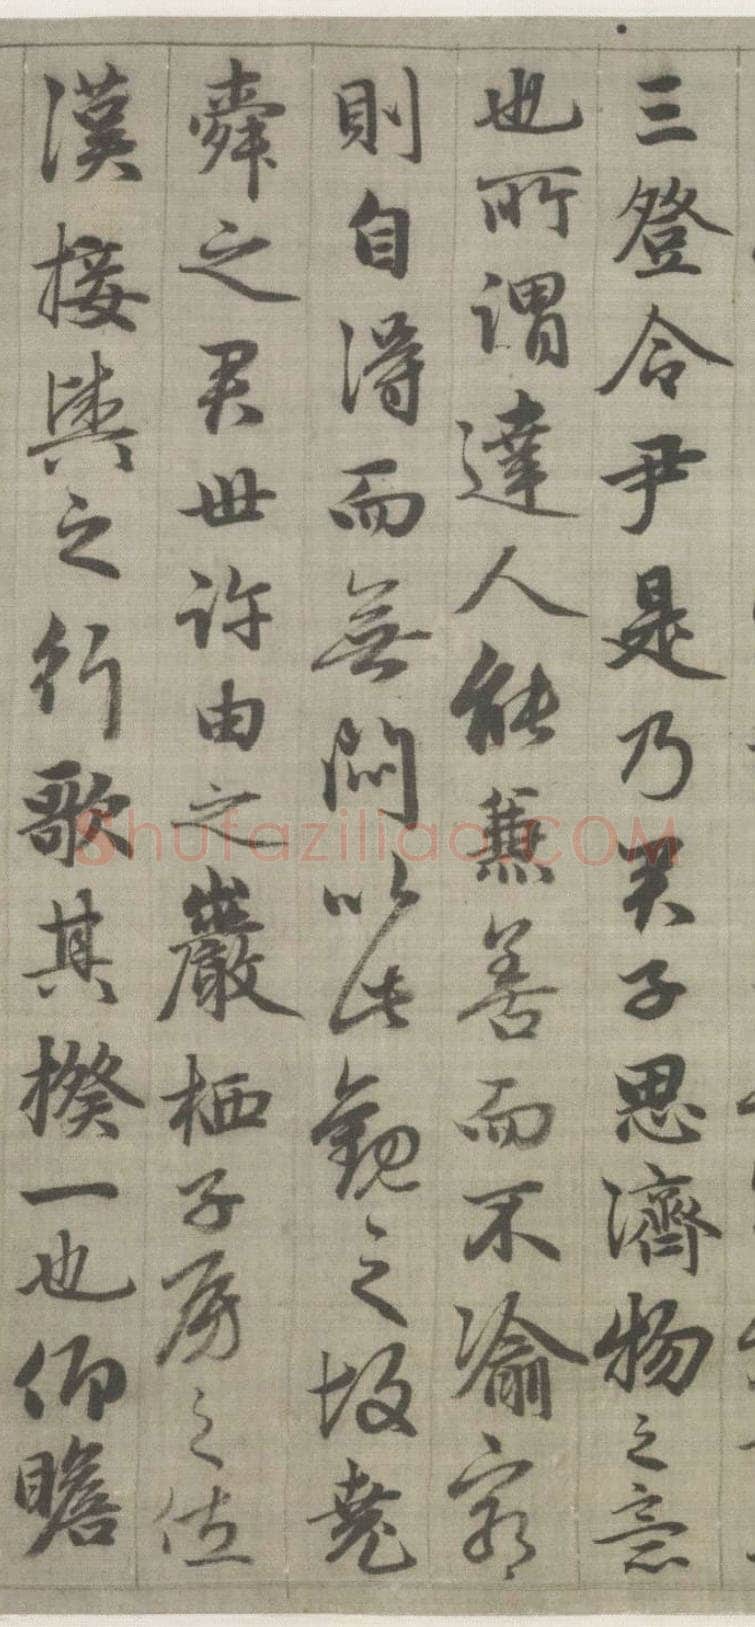 三登令尹是乃君子思濟物之意
也所謂達人能兼善而不渝窮
則自得而無悶以此觀之故堯
舜之君世許由之巖栖子房之佐
漢接輿之行歌其揆一也仰瞻
Shufaziliao.COM